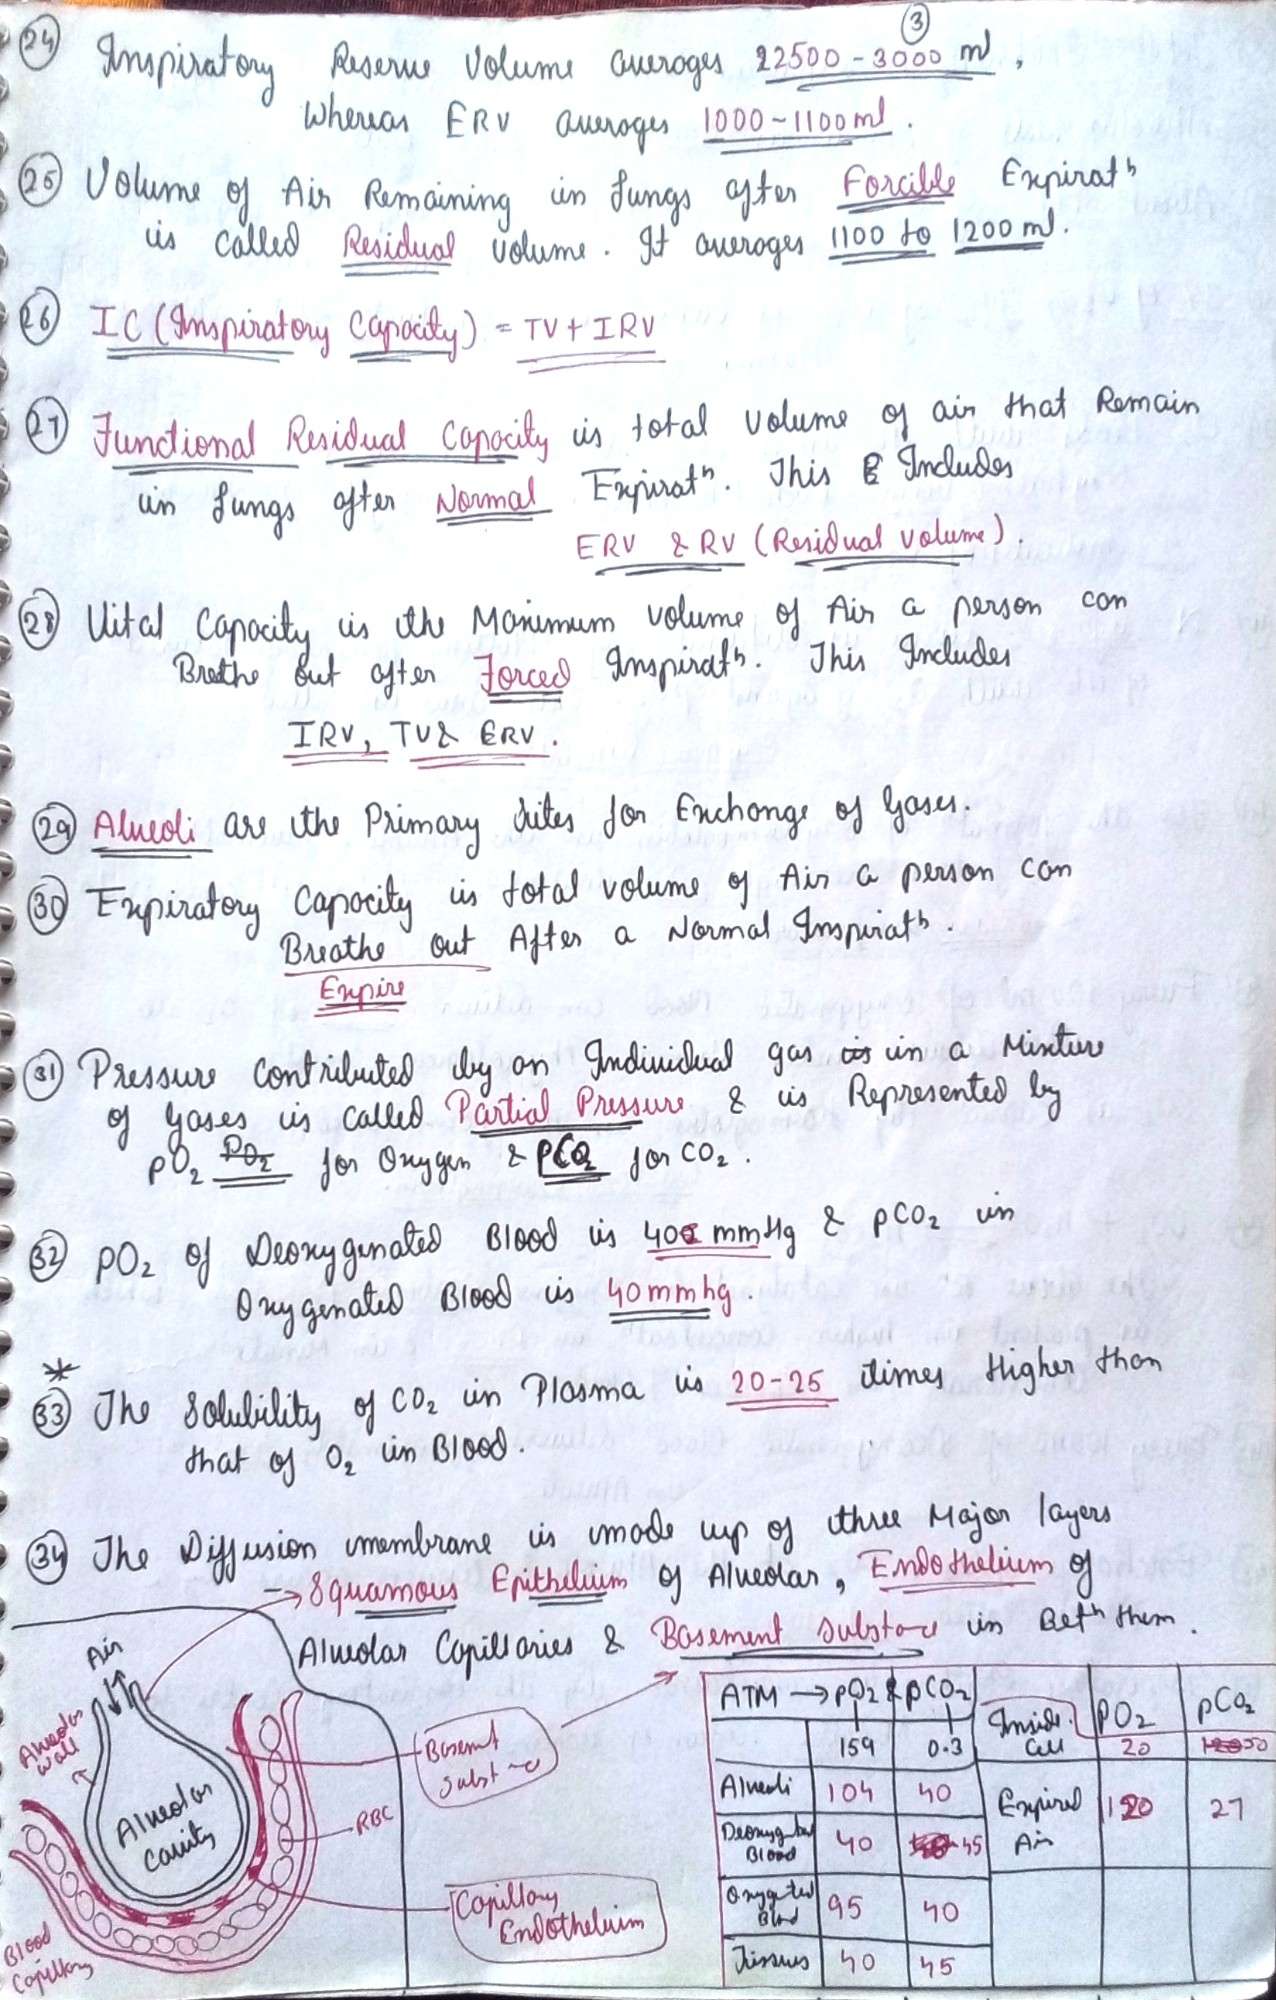 3
24 Inspiratory Reserve Volume averages 22500-3000 ml,
whereas ERV averages 1000-1100ml.
25 Volume of Air Remaining in lungs after Forcible Expiratn
is called Residual volume. It averages 1100 to 1200 ml.
26 IC (Inspiratory Capacity) = TV + IRV
27 Functional Residual Capacity is total volume of air that Remain
in lungs after Normal Expiratn. This Includes
ERV & RV (Residual volume).
28 Vital Capacity is the Maximum volume of Air a person can
Breathe out after Forced Inspiratn. This Includes
IRV, TV & ERV.
29 Alveoli are the Primary sites for Exchange of Gases.
30 Expiratory Capacity is total volume of Air a person can
Breathe out After a Normal Inspiratn.
Expire
31 Pressure contributed by an Individual gas in a Mixture
of gases is called Partial Pressure & is Represented by
pO2 PO2 for Oxygen & pCO2 for CO2.
32 pO2 of Deoxygenated Blood is 40 mmHg & pCO2 in
Oxygenated Blood is 40mmhg.
*
33 The Solubility of CO2 in Plasma is 20-25 times Higher than
that of O2 in Blood.
34 The Diffusion membrane is made up of three Major layers
→ Squamous Epithelium of Alveolar, Endothelium of
Alveolar Capillaries & Basement Substance in Betn them.
Air
Alveolar wall
Alveolar
Cavity
Blood
Capillary
Basement
Substance
RBC
Capillary
Endothelium
ATM → pO2 & pCO2 Inside Cell PO2 pCO2
159 0.3 20 50
Alveoli 104 40 Expired Air 120 27
Deoxygenated Blood 40 45
Oxygented Blood 95 40
Tissues 40 45